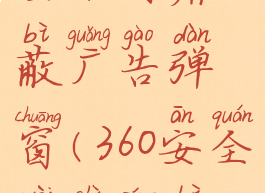 bì guǎng gào dàn
蔽广告弹
chuāng ān quán
窗(360安全